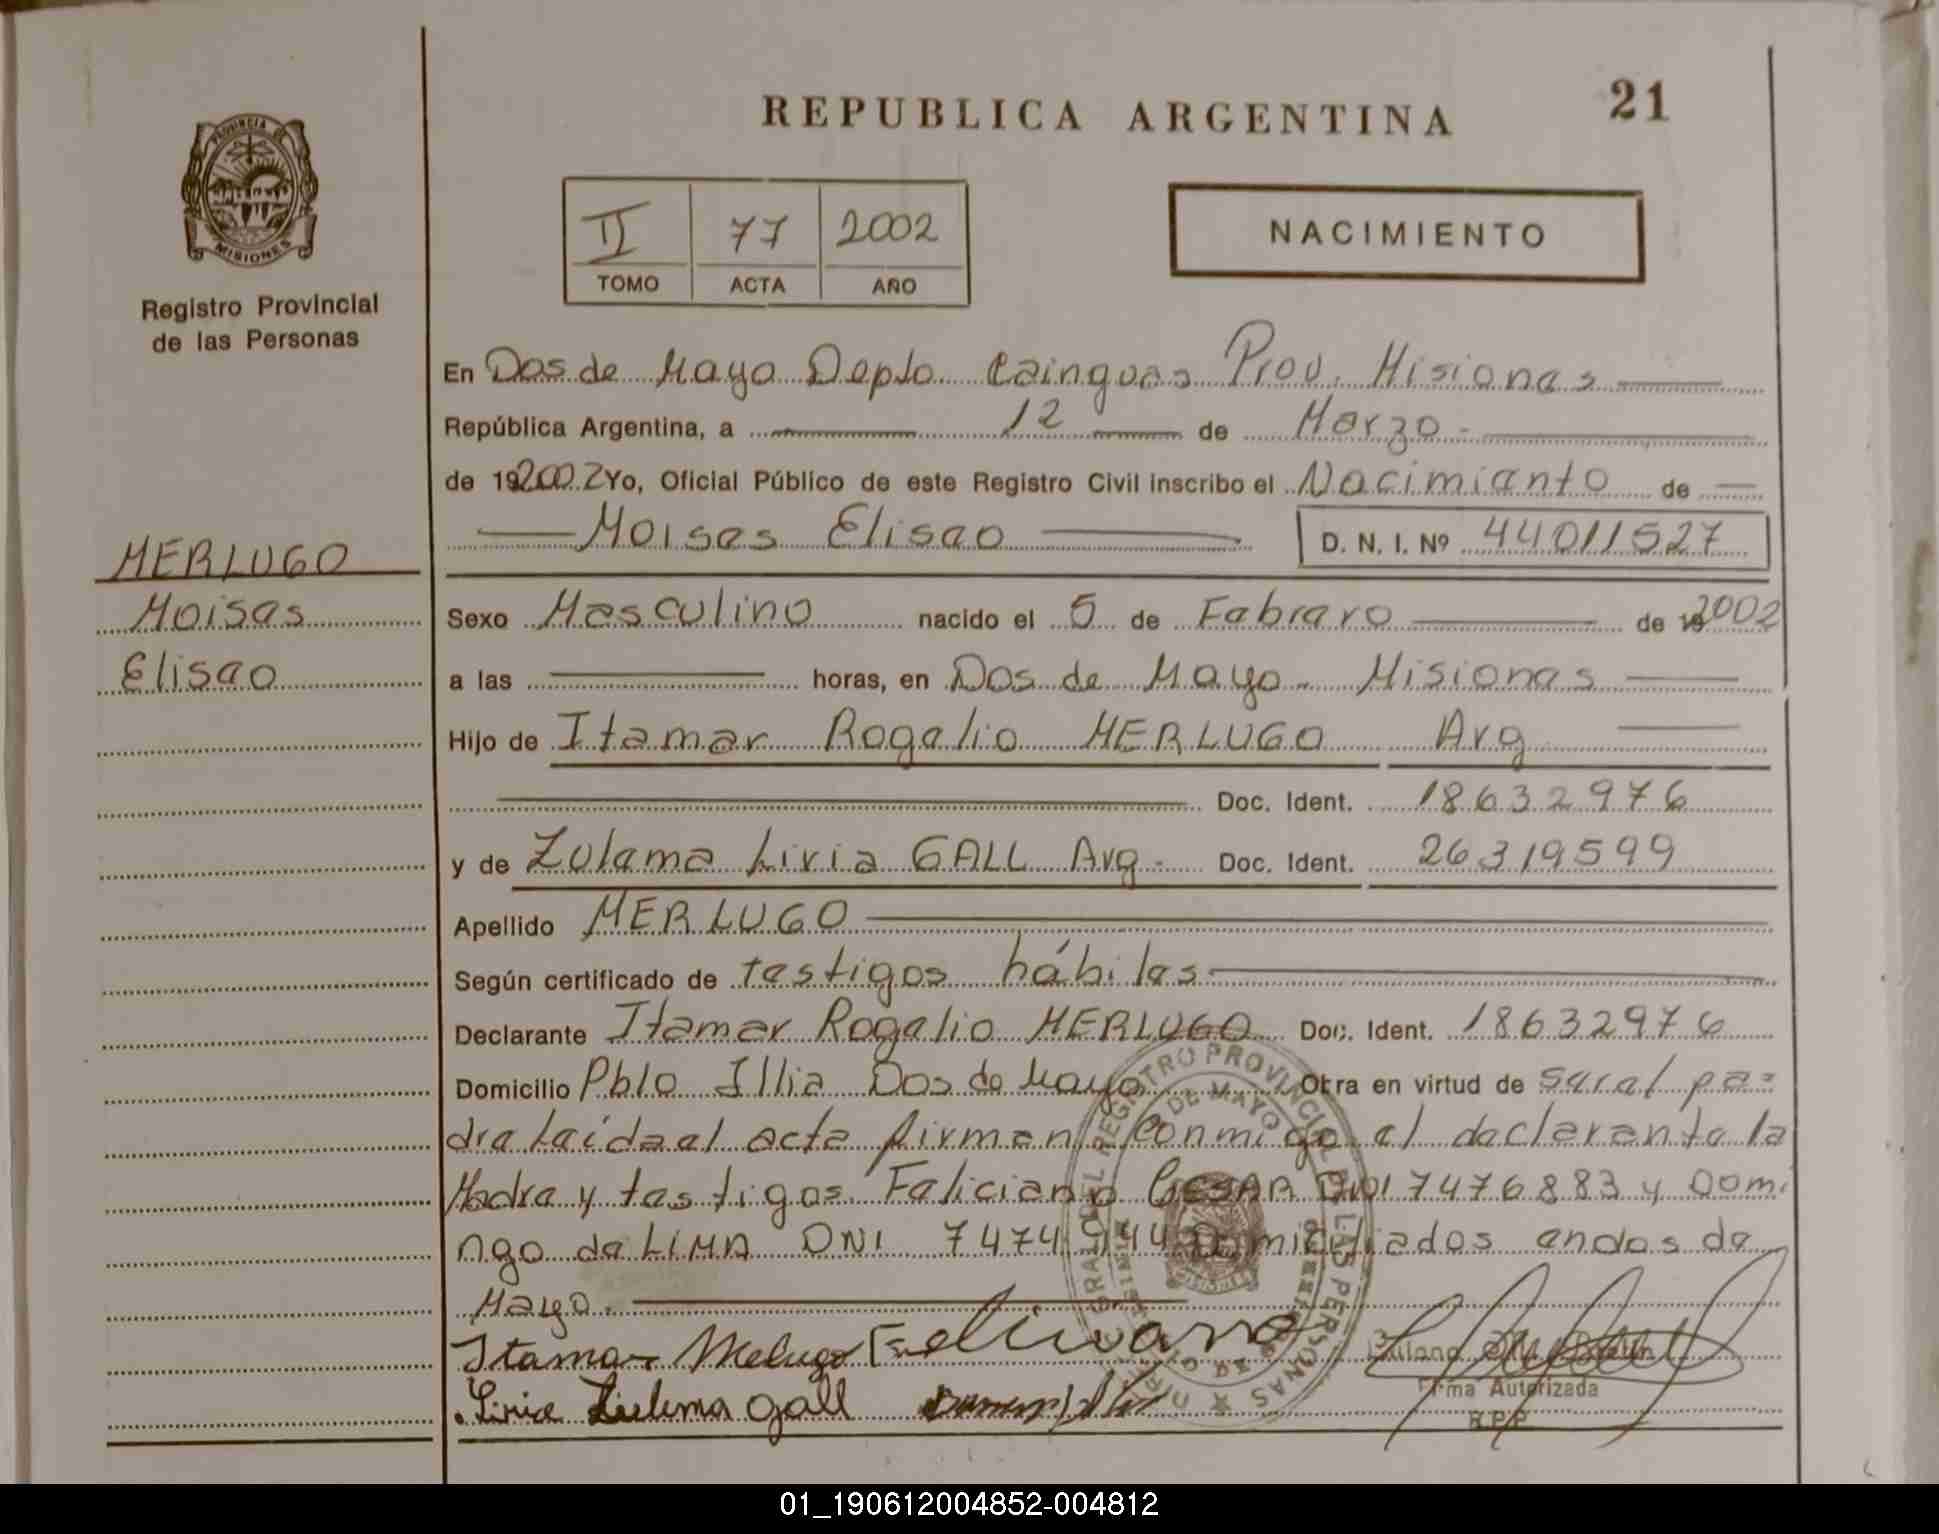 REPUBLICA ARGENTINA
21
PROVINCIA DE
MISIONES
Registro Provincial
de las Personas
II 77 2002
TOMO ACTA AÑO
NACIMIENTO
En Dos de Mayo Depto Cainguas Prov. Misiones
República Argentina, a 12 de Marzo
de 192002 Yo, Oficial Público de este Registro Civil inscribo el Nacimiento de
Moises Eliseo D. N. I. Nº 44011527
MERLUGO
Moises
Eliseo
Sexo Masculino nacido el 5 de Febrero de 192002
a las horas, en Dos de Mayo Misiones
Hijo de Itamar Rogelio MERLUGO Arg
Doc. Ident. 18632976
y de Zulema Liria GALL Arg. Doc. Ident. 26319599
Apellido MERLUGO
Según certificado de testigos hábiles
Declarante Itamar Rogelio MERLUGO Doc. Ident. 18632976
Domicilio Pblo Illia Dos de Mayo Obra en virtud de ser el pa=
dre leída el acta firman conmigo el declarante la
Madre y testigos Feliciano CESAR DNI 7476883 y Domi
ngo de LIMA DNI 7474944 Domiciliados en dos de
Mayo.
Itamar Melugo
Liria Zulema Gall
Firma Autorizada
R.P.P.
REGISTRO PROVINCIAL DE LAS PERSONAS
DE MAYO
MISIONES
01_190612004852-004812